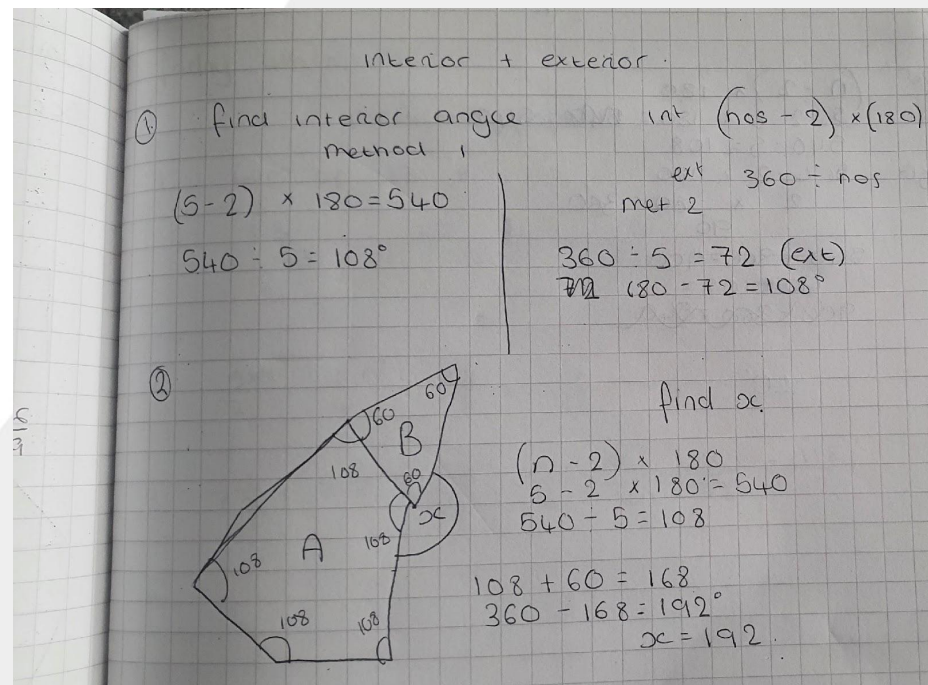 interior + exterior.
① find interior angle
method 1
(5-2) × 180 = 540
540 ÷ 5 = 108°
int (nos - 2) × (180)
ext 360 ÷ nos
met 2
360 ÷ 5 = 72 (ext)
180 - 72 = 108°
②
60
60
B
108
60
x
108
A
108
108
108
find x.
(n - 2) × 180
5 - 2 × 180 = 540
540 ÷ 5 = 108
108 + 60 = 168
360 - 168 = 192°
x = 192.